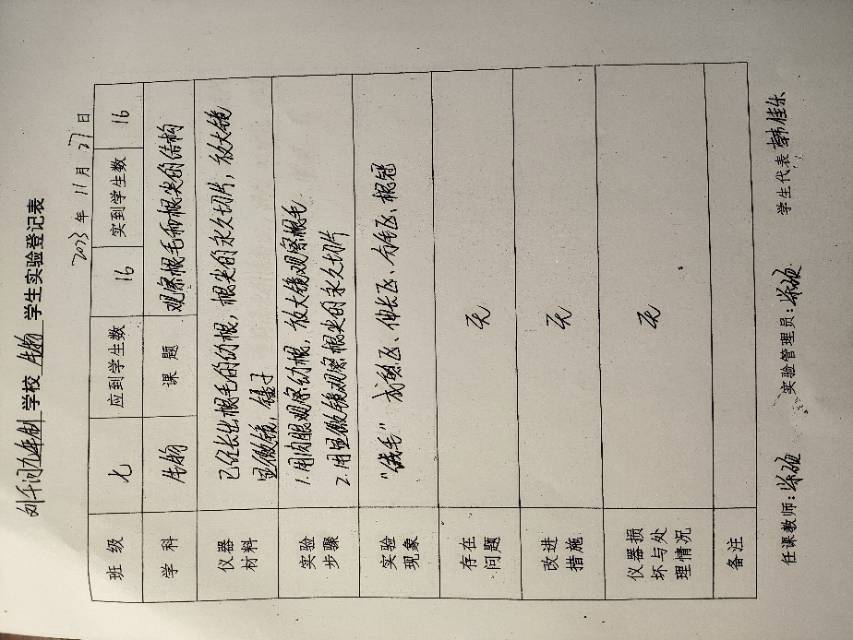 刘千问九年制学校 生物 学生实验登记表
2023年 11月 27日
班级 七 应到学生数 16 实到学生数 16
学科 生物 课题 观察根毛和根尖的结构
仪器材料 已经长出根毛的幼根，根尖的永久切片，放大镜
显微镜，镊子
实验步骤 1.用肉眼观察幼根，放大镜观察根毛
2.用显微镜观察根尖的永久切片
实验现象 "绒毛" 成熟区、伸长区、分生区、根冠
存在问题 无
改进措施 无
仪器损坏与处理情况 无
备注
任课教师： 实验管理员： 学生代表 韩佳乐